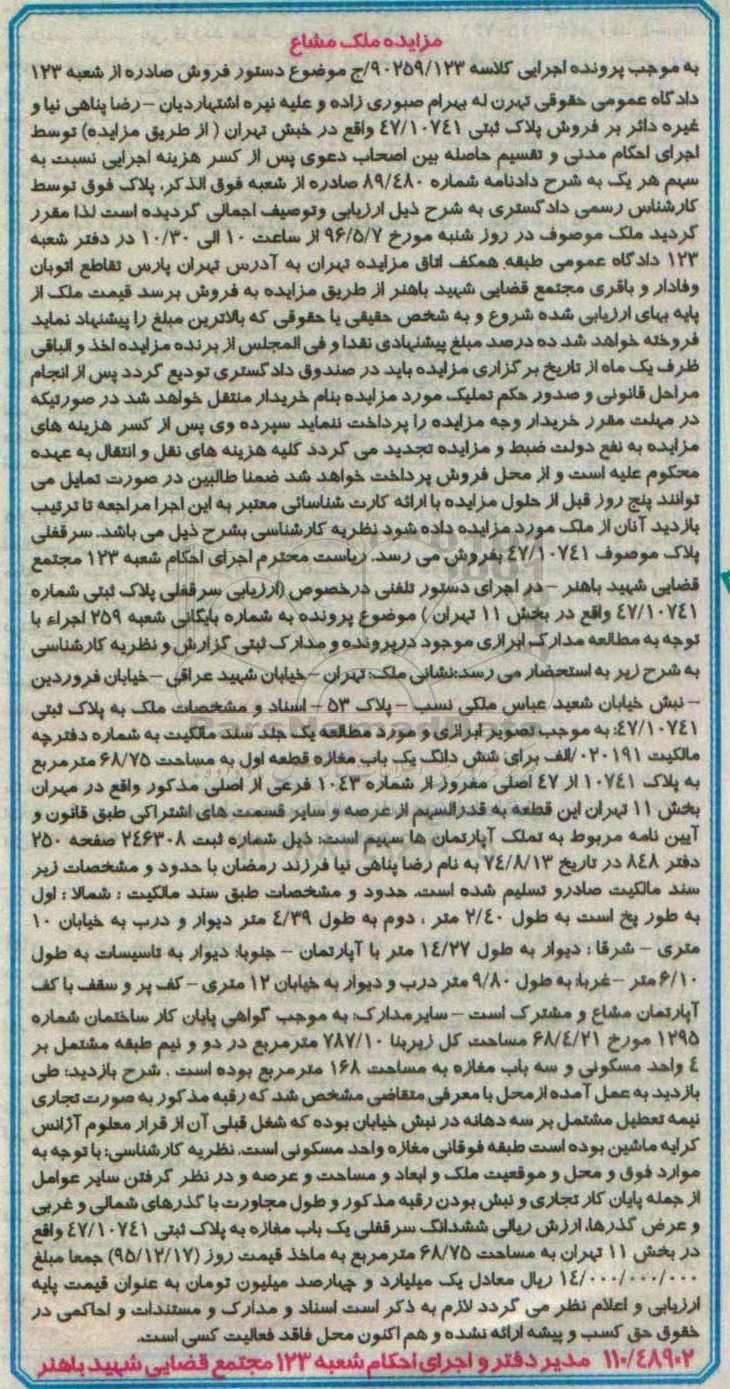 مزایده ملک مشاع
به موجب پرونده اجرایی کلاسه ۹۰۲۵۹/۱۲۳/ج موضوع دستور فروش صادره از شعبه ۱۲۳
دادگاه عمومی حقوقی تهرن له بهرام صبوری زاده و علیه نیره اشتهاردیان – رضا پناهی نیا و
غیره دائر بر فروش پلاک ثبتی ۴۷/۱۰۷۴۱ واقع در خبش تهران ( از طریق مزایده) توسط
اجرای احکام مدنی و تقسیم حاصله بین اصحاب دعوی پس از کسر هزینه اجرایی نسبت به
سهم هر یک به شرح دادنامه شماره ۸۹/۴۸۰ صادره از شعبه فوق الذکر، پلاک فوق توسط
کارشناس رسمی دادگستری به شرح ذیل ارزیابی وتوصیف اجمالی گردیده است لذا مقرر
گردید ملک موصوف در روز شنبه مورخ ۹۶/۵/۷ از ساعت ۱۰ الی ۱۰/۳۰ در دفتر شعبه
۱۲۳ دادگاه عمومی طبقه همکف اتاق مزایده تهران به آدرس تهران پارس تقاطع اتوبان
وفادار و باقری مجتمع قضایی شهید باهنر از طریق مزایده به فروش برسد قیمت ملک از
پایه بهای ارزیابی شده شروع و به شخص حقیقی یا حقوقی که بالاترین مبلغ را پیشنهاد نماید
فروخته خواهد شد ده درصد مبلغ پیشنهادی نقدا و فی المجلس از برنده مزایده اخذ و الباقی
ظرف یک ماه از تاریخ برگزاری مزایده باید در صندوق دادگستری تودیع گردد پس از انجام
مراحل قانونی و صدور حکم تملیک مورد مزایده بنام خریدار منتقل خواهد شد در صورتیکه
در مهلت مقرر خریدار وجه مزایده را پرداخت ننماید سپرده وی پس از کسر هزینه های
مزایده به نفع دولت ضبط و مزایده تجدید می گردد کلیه هزینه های نقل و انتقال به عهده
محکوم علیه است و از محل فروش پرداخت خواهد شد ضمنا طالبین در صورت تمایل می
توانند پنج روز قبل از حلول مزایده با ارائه کارت شناسائی معتبر به این اجرا مراجعه تا ترتیب
بازدید آنان از ملک مورد مزایده داده شود نظریه کارشناسی بشرح ذیل می باشد. سرقفلی
پلاک موصوف ۴۷/۱۰۷۴۱ بفروش می رسد. ریاست محترم اجرای احکام شعبه ۱۲۳ مجتمع
قضایی شهید باهنر – در اجرای دستور تلفنی درخصوص (ارزیابی سرقفلی پلاک ثبتی شماره
۴۷/۱۰۷۴۱ واقع در بخش ۱۱ تهران ) موضوع پرونده به شماره بایگانی شعبه ۲۵۹ اجراء با
توجه به مطالعه مدارک ابرازی موجود درپرونده و مدارک ثبتی گزارش و نظریه کارشناسی
به شرح زیر به استحضار می رسد:نشانی ملک: تهران – خیابان شهید عراقی – خیابان فروردین
– نبش خیابان شعید عباس ملکی نسب – پلاک ۵۳ – اسناد و مشخصات ملک به پلاک ثبتی
۴۷/۱۰۷۴۱: به موجب تصویر ابرازی و مورد مطالعه یک جلد سند مالکیت به شماره دفترچه
مالکیت ۰۲۰۱۹۱/الف برای شش دانگ یک باب مغازه قطعه اول به مساحت ۶۸/۷۵ مترمربع
به پلاک ۱۰۷۴۱ از ۴۷ اصلی مفروز از شماره ۱۰۴۳ فرعی از اصلی مذکور واقع در مهران
بخش ۱۱ تهران این قطعه به قدرالسهم از عرصه و سایر قسمت های اشتراکی طبق قانون و
آیین نامه مربوط به تملک آپارتمان ها سهیم است: ذیل شماره ثبت ۲۴۶۳۰۸ صفحه ۲۵۰
دفتر ۸۴۸ در تاریخ ۷۴/۸/۱۳ به نام رضا پناهی نیا فرزند رمضان با حدود و مشخصات زیر
سند مالکیت صادرو تسلیم شده است. حدود و مشخصات طبق سند مالکیت : شمالا : اول
به طور پخ است به طول ۲/۴۰ متر ، دوم به طول ۴/۳۹ متر دیوار و درب به خیابان ۱۰
متری – شرقا : دیوار به طول ۱۴/۲۷ متر با آپارتمان – جنوبا: دیوار به تاسیسات به طول
۶/۱۰ متر – غربا: به طول ۹/۸۰ متر درب و دیوار به خیابان ۱۲ متری – کف پر و سقف با کف
آپارتمان مشاع و مشترک است – سایرمدارک: به موجب گواهی پایان کار ساختمان شماره
۱۲۹۵ مورخ ۶۸/۴/۲۱ مساحت کل زیربنا ۷۸۷/۱۰ مترمربع در دو و نیم طبقه مشتمل بر
۴ واحد مسکونی و سه باب مغازه به مساحت ۱۶۸ مترمربع بوده است . شرح بازدید: طی
بازدید به عمل آمده ازمحل با معرفی متقاضی مشخص شد که رقبه مذکور به صورت تجاری
نیمه تعطیل مشتمل بر سه دهانه در نبش خیابان بوده که شغل قبلی آن از قرار معلوم آژانس
کرایه ماشین بوده است طبقه فوقانی مغازه واحد مسکونی است. نظریه کارشناسی: با توجه به
موارد فوق و محل و موقعیت ملک و ابعاد و مساحت و عرصه و در نظر گرفتن سایر عوامل
از جمله پایان کار تجاری و نبش بودن رقبه مذکور و طول مجاورت با گذرهای شمالی و غربی
و عرض گذرها، ارزش ریالی ششدانگ سرقفلی یک باب مغازه به پلاک ثبتی ۴۷/۱۰۷۴۱ واقع
در بخش ۱۱ تهران به مساحت ۶۸/۷۵ مترمربع به ماخذ قیمت روز (۹۵/۱۲/۱۷) جمعا مبلغ
۱۴/۰۰۰/۰۰۰/۰۰۰ ریال معادل یک میلیارد و چهارصد میلیون تومان به عنوان قیمت پایه
ارزیابی و اعلام نظر می گردد لازم به ذکر است اسناد و مدارک و مستندات و احاکمی در
خقوق حق کسب و پیشه ارائه نشده و هم اکنون محل فاقد فعالیت کسی است.
۱۱۰/۴۸۹۰۲ مدیر دفتر و اجرای احکام شعبه ۱۲۳ مجتمع قضایی شهید باهنر